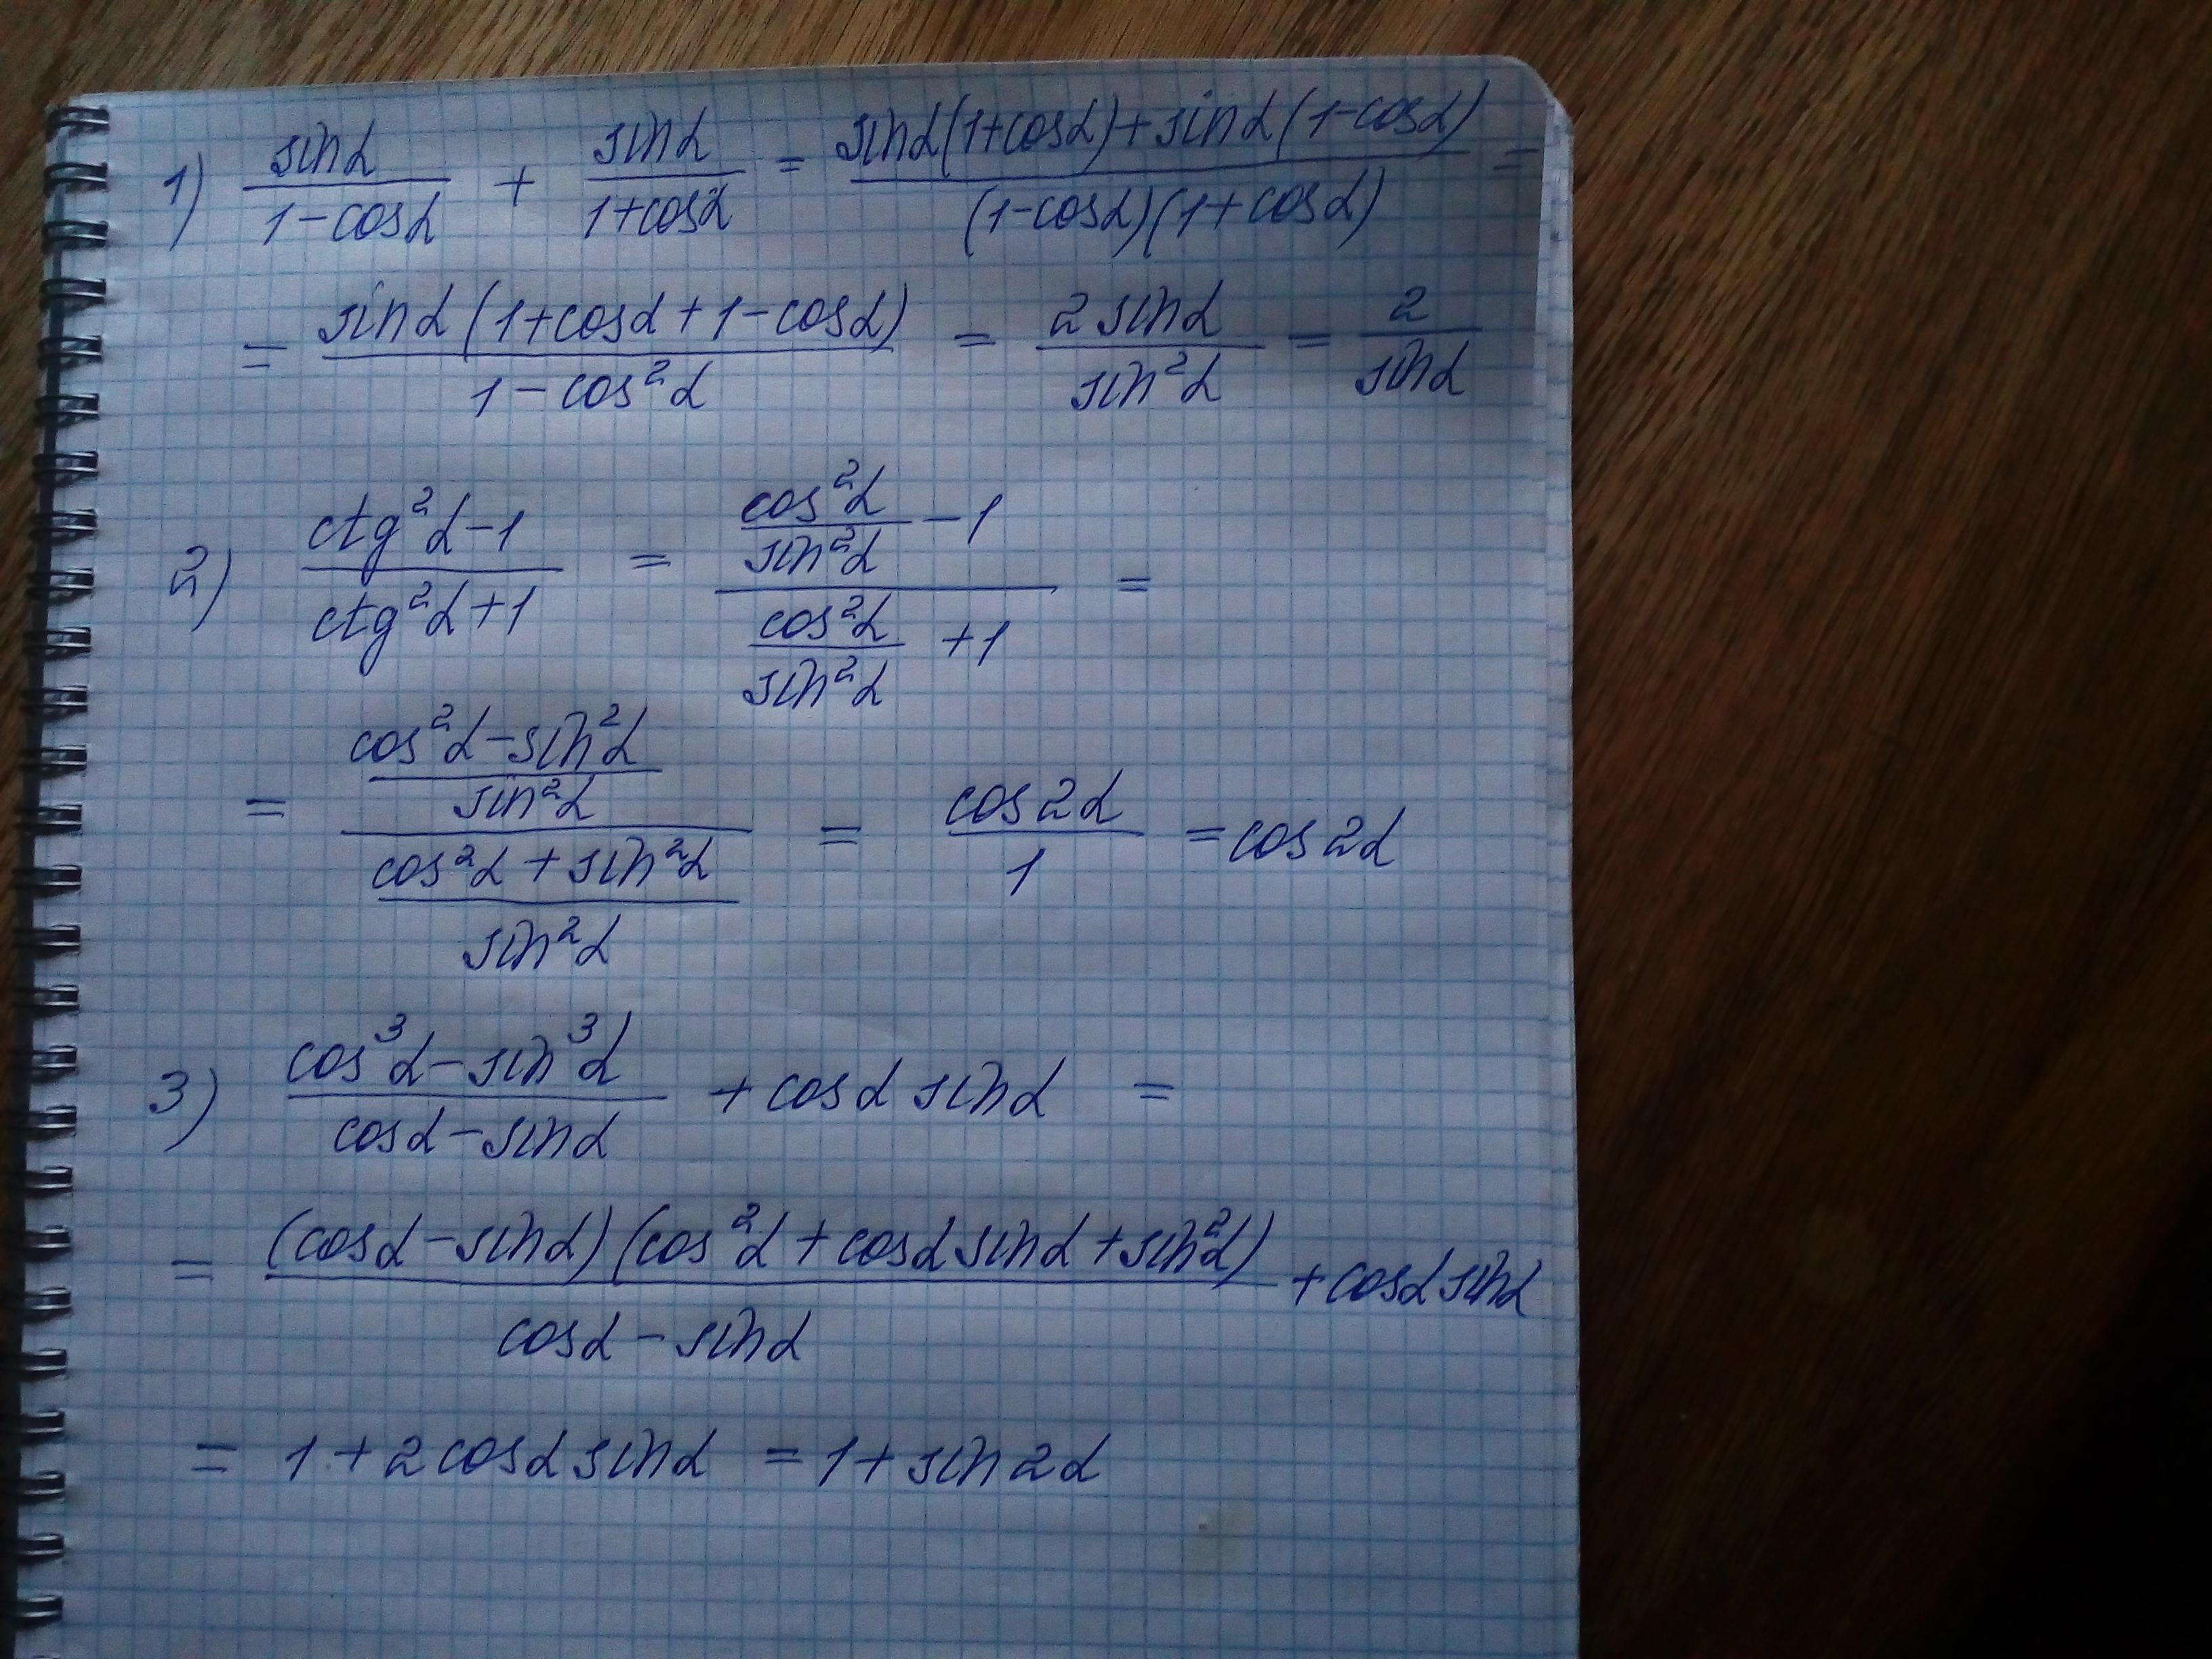 1) sinα/(1-cosα) + sinα/(1+cosα) = (sinα(1+cosα)+sinα(1-cosα))/((1-cosα)(1+cosα)) =
= sinα(1+cosα+1-cosα)/(1-cos²α) = 2sinα/sin²α = 2/sinα
2) (ctg²α-1)/(ctg²α+1) = (cos²α/sin²α -1)/(cos²α/sin²α +1) =
= ((cos²α-sin²α)/sin²α)/((cos²α+sin²α)/sin²α) = cos2α/1 = cos2α
3) (cos³α-sin³α)/(cosα-sinα) + cosα sinα =
= (cosα-sinα)(cos²α+cosα sinα+sin²α)/(cosα-sinα) + cosα sinα
= 1+2cosα sinα = 1+sin2α